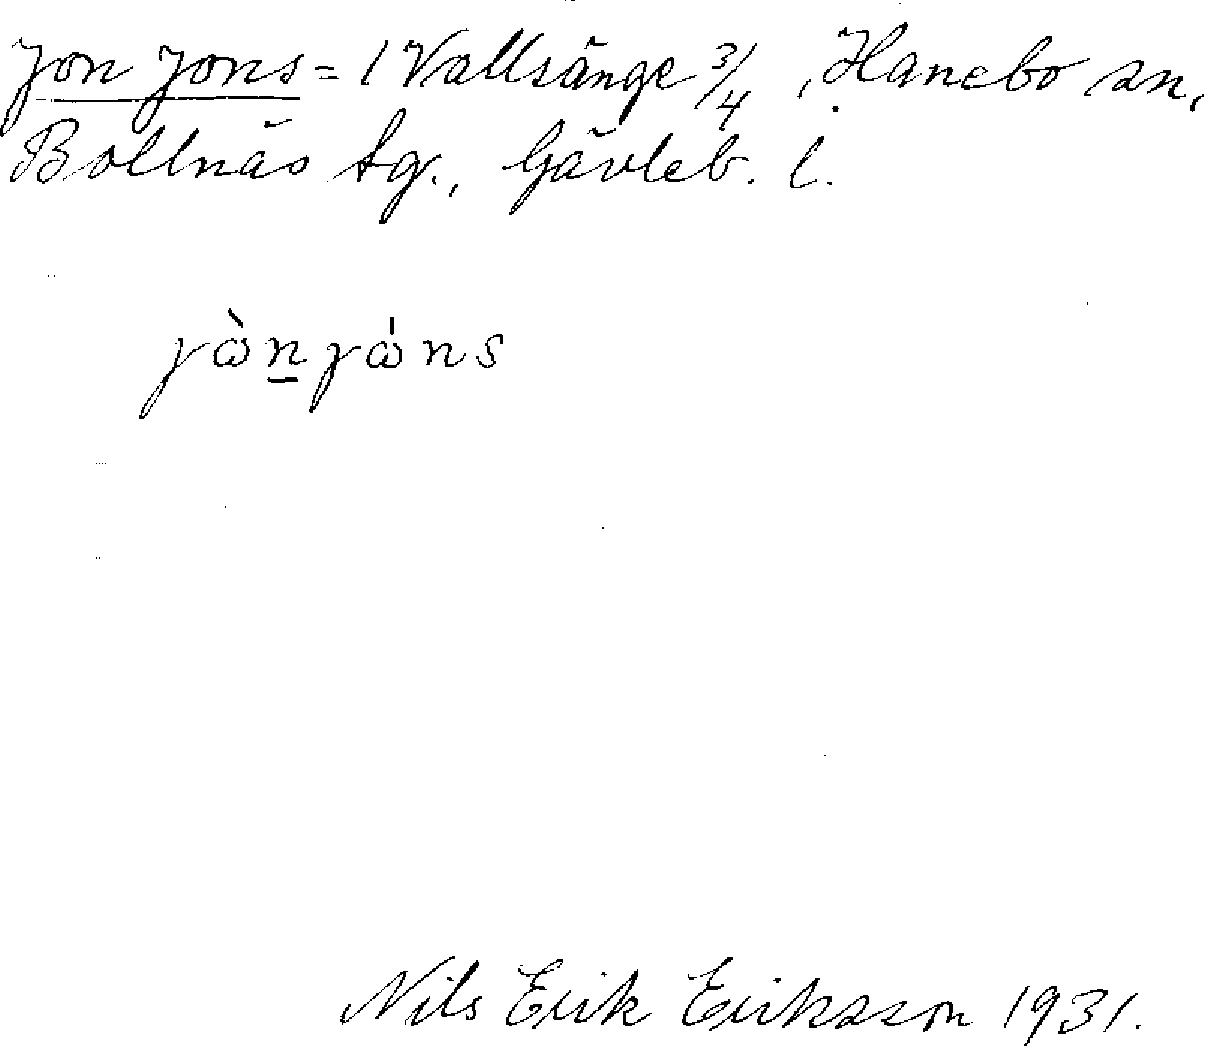 Jon Jons = 1 Vallsänge 3/4, Hanebo sn,
Bollnäs tg., Gävleb. l.
jὼn̲jώns
Nils Erik Eriksson 1931.